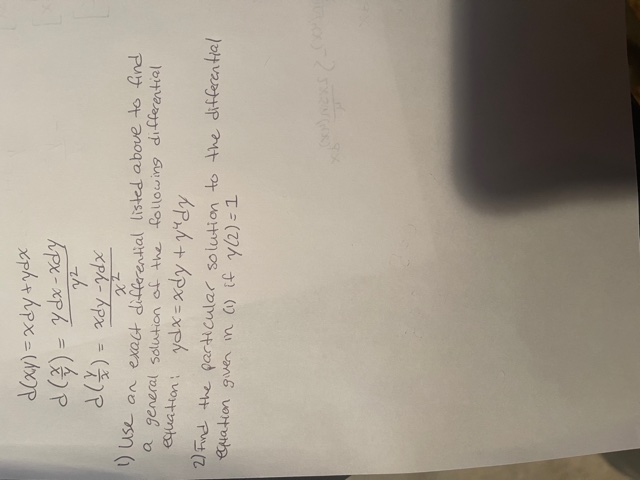 d(xy) = xdy + ydx
d(x/y) = ydx - xdy / y²
d(y/x) = xdy - ydx / x²
1) Use an exact differential listed above to find
a general solution of the following differential
equation: ydx = xdy + y⁴dy
2) Find the particular solution to the differential
equation given in (1) if y(2) = 1